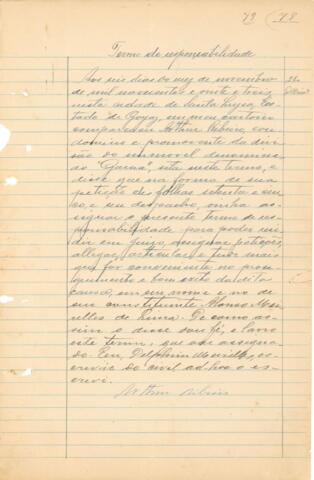 79 78
Termo de responsabilidade
Aos seis dias do mez de novembro
de mil novecentos e vinte e tres,
nesta cidade de Santa Luzia, Es-
tado de Goyaz, em meu cartorio
compareceu Arthur Ribeiro, con-
domino e promovente da divi-
são do immovel denomina-
do "Gama", sito neste termo, e
disse que na forma de sua
petição de folhas setenta e
e seu despacho, vinha as-
signar o presente termo de res-
ponsabilidade para poder
em juizo, assignar petições,
allegar, articular e tudo mais
que for conveniente no prose-
guimento e bom exito da dita
causa, em seu nome e no de
seu constituinte Alonso Mei-
relles de Lima. De como as-
sim o disse dou fé, e lavro
este termo, que vae assigna-
do. Eu, Delphino Meirelles, es-
crivão do civel ad-hoc o es-
crevi.
Arthur Ribeiro